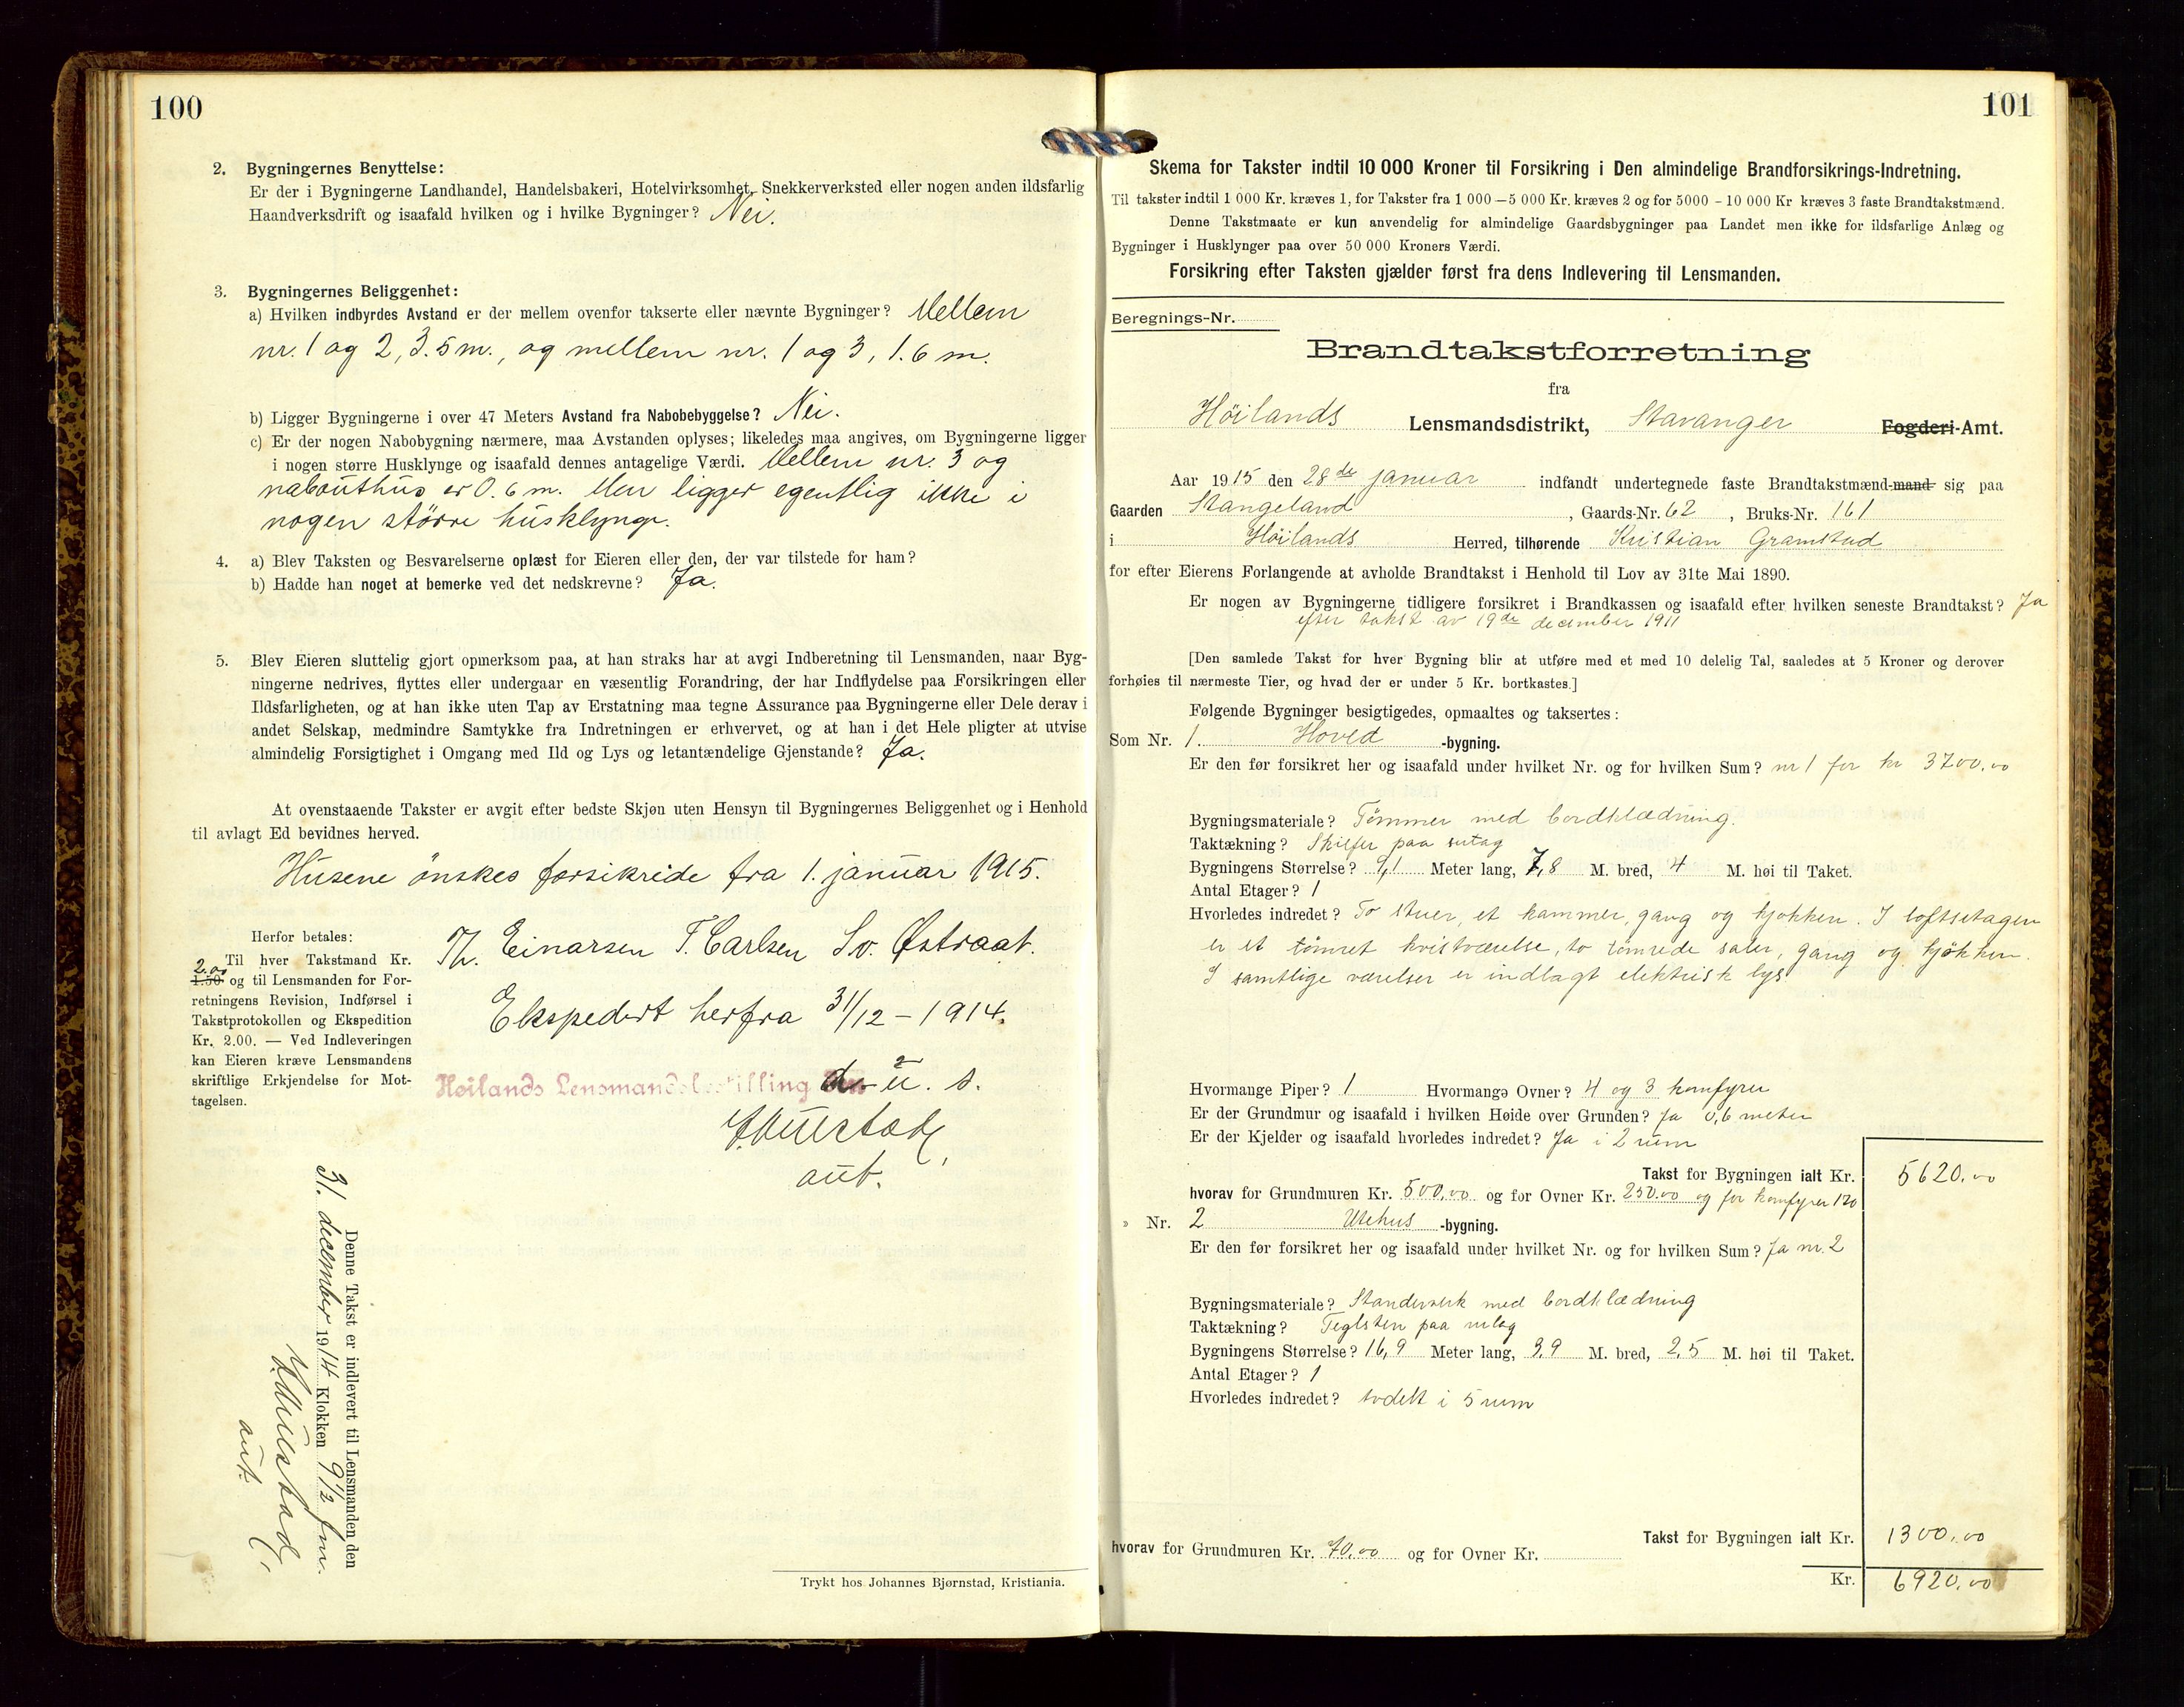 100
2. Bygningernes Benyttelse:
Er der i Bygningerne Landhandel, Handelsbakeri, Hotelvirksomhet, Snekkerverksted eller nogen anden ildsfarlig
Haandverksdrift og isaafald hvilken og i hvilke Bygninger? Nei.
3. Bygningernes Beliggenhet:
a) Hvilken indbyrdes Avstand er der mellem ovenfor takserte eller nævnte Bygninger? Mellem
nr. 1 og 2, 3.5 m., og mellem nr. 1 og 3, 1.6 m.
b) Ligger Bygningerne i over 47 Meters Avstand fra Nabobebyggelse? Nei.
c) Er der nogen Nabobygning nærmere, maa Avstanden oplyses; likeledes maa angives, om Bygningerne ligger
i nogen større Husklynge og isaafald dennes antagelige Værdi. Mellem nr. 3 og
nabouthus er 0.6 m. Men ligger egentlig ikke i
nogen större husklynge.
4. a) Blev Taksten og Besvarelserne oplæst for Eieren eller den, der var tilstede for ham?
b) Hadde han noget at bemerke ved det nedskrevne? Ja.
5. Blev Eieren sluttelig gjort opmerksom paa, at han straks har at avgi Indberetning til Lensmanden, naar Byg-
ningerne nedrives, flyttes eller undergaar en væsentlig Forandring, der har Indflydelse paa Forsikringen eller
Ildsfarligheten, og at han ikke uten Tap av Erstatning maa tegne Assurance paa Bygningerne eller Dele derav i
andet Selskap, medmindre Samtykke fra Indretningen er erhvervet, og at han i det Hele pligter at utvise
almindelig Forsigtighet i Omgang med Ild og Lys og letantændelige Gjenstande? Ja.
At ovenstaaende Takster er avgit efter bedste Skjøn uten Hensyn til Bygningernes Beliggenhet og i Henhold
til avlagt Ed bevidnes herved.
Husene önskes forsikrede fra 1. januar 1915.
Th. Einarsen T. Carlsen Sv. Østraat.
Herfor betales:
Til hver Takstmand Kr.
2.00
1.50 og til Lensmanden for For-
retningens Revision, Indførsel i
Takstprotokollen og Ekspedition
Kr. 2.00. — Ved Indleveringen
kan Eieren kræve Lensmandens
skriftlige Erkjendelse for Mot-
tagelsen.
Ekspedert herfra 31/12 - 1914.
Høilands Lensmandsbestilling d. u. s.
aut.
Denne Takst er indlevert til Lensmanden den
31. december 1914 Klokken 9 1/2 fm.
aut.
Trykt hos Johannes Bjørnstad, Kristiania.
101
Skema for Takster indtil 10 000 Kroner til Forsikring i Den almindelige Brandforsikrings-Indretning.
Til takster indtil 1 000 Kr. kræves 1, for Takster fra 1 000 — 5 000 Kr. kræves 2 og for 5000 - 10 000 Kr kræves 3 faste Brandtakstmænd.
Denne Takstmaate er kun anvendelig for almindelige Gaardsbygninger paa Landet men ikke for ildsfarlige Anlæg og
Bygninger i Husklynger paa over 50 000 Kroners Værdi.
Forsikring efter Taksten gjælder først fra dens Indlevering til Lensmanden.
Beregnings-Nr.
Brandtakstforretning
fra
Höilands Lensmandsdistrikt, Stavanger Fogderi-Amt.
Aar 1915 den 28de januar indfandt undertegnede faste Brandtakstmænd-mand sig paa
Gaarden Stangeland, Gaards-Nr. 62, Bruks-Nr. 161
i Höilands Herred, tilhørende Kristian Gramstad
for efter Eierens Forlangende at avholde Brandtakst i Henhold til Lov av 31te Mai 1890.
Er nogen av Bygningerne tidligere forsikret i Brandkassen og isaafald efter hvilken seneste Brandtakst? Ja
efter takst av 19de december 1911
[Den samlede Takst for hver Bygning blir at utføre med et med 10 delelig Tal, saaledes at 5 Kroner og derover
forhøies til nærmeste Tier, og hvad der er under 5 Kr. bortkastes.]
Følgende Bygninger besigtigedes, opmaaltes og taksertes:
Som Nr. 1. Hoved-bygning.
Er den før forsikret her og isaafald under hvilket Nr. og for hvilken Sum? nr 1 for kr 3700.00
Bygningsmateriale? Tømmer med bordklædning.
Taktækning? Skifer paa sutag
Bygningens Størrelse? 9,1 Meter lang, 7,8 M. bred, 4 M. høi til Taket.
Antal Etager? 1
Hvorledes indredet? To stuer, et kammer, gang og kjøkken. I loftsetagen
er et tömret kvistværelse, to tømrede saler, gang og kjökken.
I samtlige værelser er indlagt elektrisk lys
Hvormange Piper? 1 Hvormange Ovner? 4 og 3 komfyrer
Er der Grundmur og isaafald i hvilken Høide over Grunden? Ja 0,6 meter
Er der Kjelder og isaafald hvorledes indredet? Ja i 2 rum
Takst for Bygningen ialt Kr. 5620.00
hvorav for Grundmuren Kr. 500.00 og for Ovner Kr. 250.00 og for komfyrer 120
» Nr. 2 Utehus-bygning.
Er den før forsikret her og isaafald under hvilket Nr. og for hvilken Sum? Ja nr. 2
Bygningsmateriale? Standerverk med bordklædning
Taktækning? Teglsten paa
Bygningens Størrelse? 16,9 Meter lang, 3,9 M. bred, 2,5 M. høi til Taket.
Antal Etager? 1
Hvorledes indredet? avdelt i 5 rum
Takst for Bygningen ialt Kr. 1300.00
hvorav for Grundmuren Kr. 70.00 og for Ovner Kr.
Kr. 6920.00